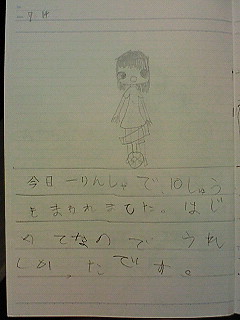 今日一りんしゃで、10しゅう
もまわれました。はじ
めてなのでうれ
しかったです。